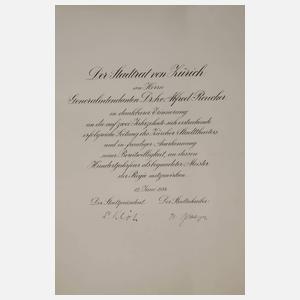 Der Stadtrat von Zürich
von Herrn
Generalintendanten Dr. h.c. Alfred Reucker
in dankbarer Erinnerung
an die auf zwei Jahrzehnte sich erstreckende
erfolgreiche Leitung des Zürcher Stadttheaters
und in freudiger Anerkennung
seiner Bereitwilligkeit, an dessen
Hundertjahrfeier als begeisterter Meister
der Regie mitzuwirken.
Juni 1934
Der Stadtpräsident: Der Stadtschreiber: